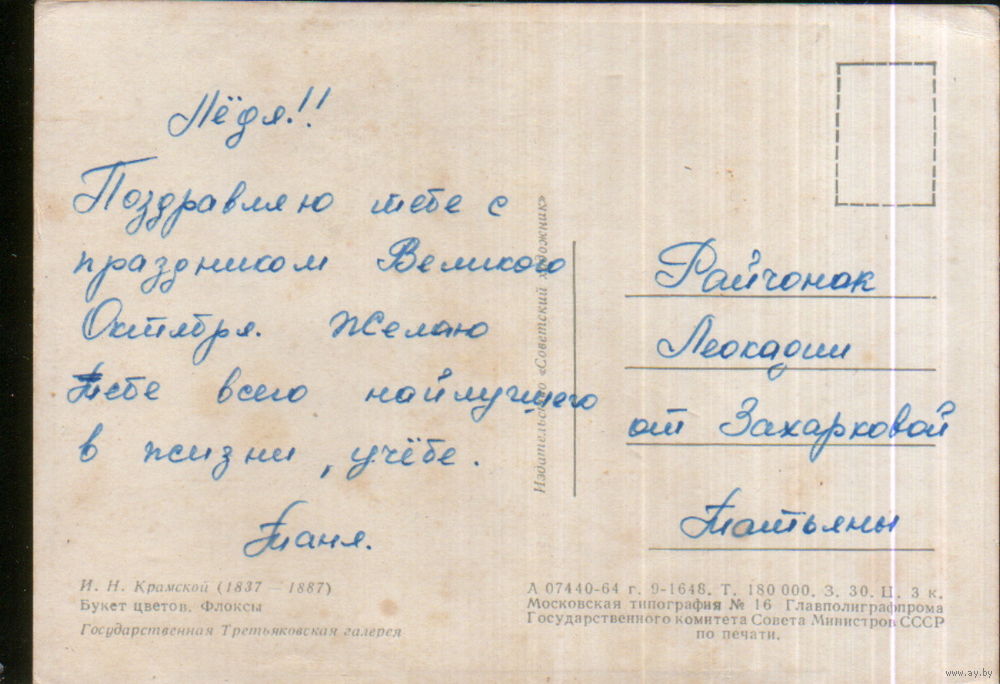 Лёдя!!
Поздравляю тебе с
праздником Великого
Октября. Желаю
Тебе всего найлучшего
в жизни, учёбе.
Таня.
И. Н. Крамской (1837 — 1887)
Букет цветов. Флоксы
Государственная Третьяковская галерея
Издательство «Советский художник»
Райчонак
Леокадии
от Захарковой
Татьяны
А 07440-64 г. 9-1648. Т. 180 000. З. 30. Ц. 3 к.
Московская типография № 16 Главполиграфпрома
Государственного комитета Совета Министров СССР
по печати.
www.ay.by